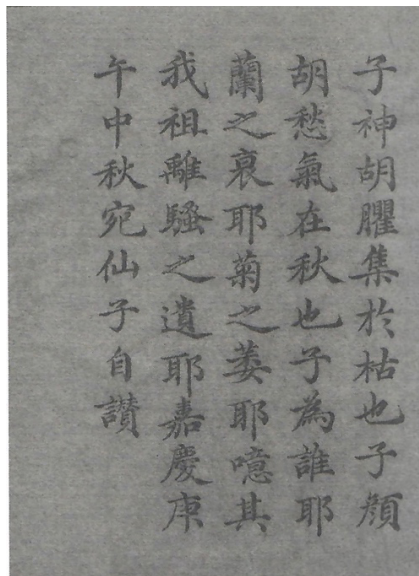 子神胡臞集於枯也子顏
胡愁氣在秋也子為誰耶
蘭之哀耶菊之萎耶噫其
我祖離騷之遺耶嘉慶庚
午中秋宛仙子自讚